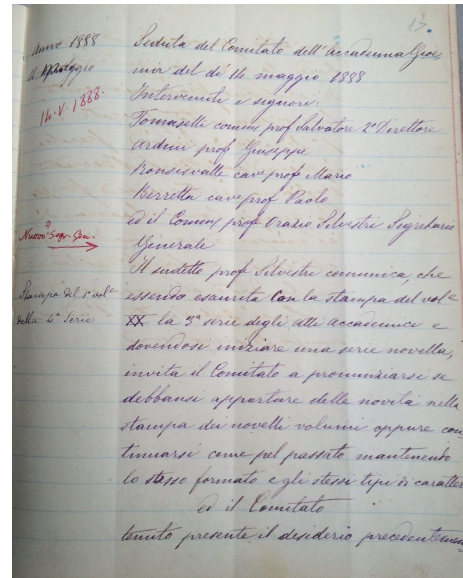 13.
Anno 1888
14 Maggio
14.V.1888.
Nuovo Segr. Gen.
Stampa del 1° vol.e
della 4a Serie
Seduta del Comitato dell'Accademia Gioe,
nia del dì 14 maggio 1888
Intervenuti i signori:
Tomaselli comm prof Salvatore 2° Direttore
Ardini prof Giuseppe
Ronsisvalle cav prof Mario
Berretta cav prof Paolo
ed il Comm prof Orazio Silvestri Segretario
Generale
Il sudetto prof Silvestri comunica, che
essendo esaurita con la stampa del vole
XX la 3a serie degli atti accademici e
dovendosi iniziare una serie novella,
invita il Comitato a pronunziarsi se
debbansi apportare delle novità nella
stampa dei novelli volumi oppure con
tinuarsi come pel passato mantenendo
lo stesso formato e gli stessi tipi di caratter
ed il Comitato
tenuto presente il desiderio precedentemen